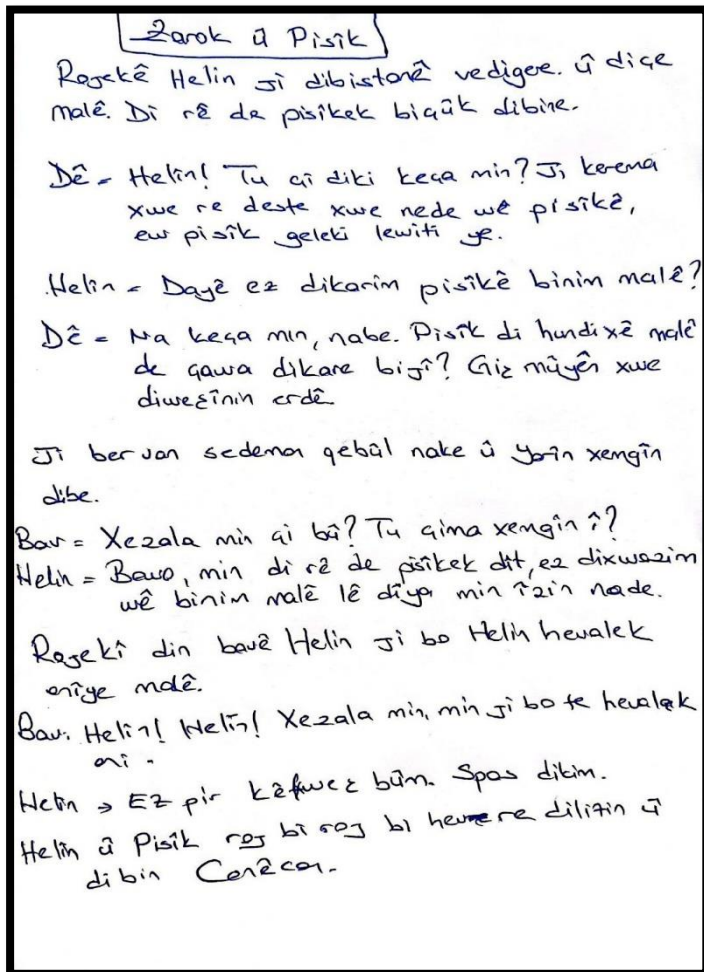 Zarok û Pisîk
Rojekê Helin ji dibistanê vedigere. û diçe
malê. Di rê da pisîkek biçûk dibine.
Dê = Helîn! Tu çi diki keça min? Ji kerema
xwe re deste xwe nede wê pisîkê,
ew pisîk geleki lewiti ye.
Helin = Dayê ez dikarim pisîkê binim malê?
Dê = Na keça min, nabe. Pisîk di hundixê malê
de çawa dikare bijî? Giz mûyên xwe
diweşînin erdê
Ji ber van sedeman qebûl nake û xemgîn
dibe.
Bav = Xezala min çi bû? Tu çima xemgîn î?
Helin = Bavo, min di rê de pisîkek dît, ez dixwazim
wê binim malê lê dîya min îzin nade.
Rojekî din bavê Helin ji bo Helin hevalek
anîye malê.
Bav: Helîn! Helîn! Xezala min, min ji bo te hevalek
ani.
Helin → EZ pir kêfweş bûm. Spas dikim.
Helîn û Pisîk roj bi roj bi hevre dilizin û
dibin Canêcan.